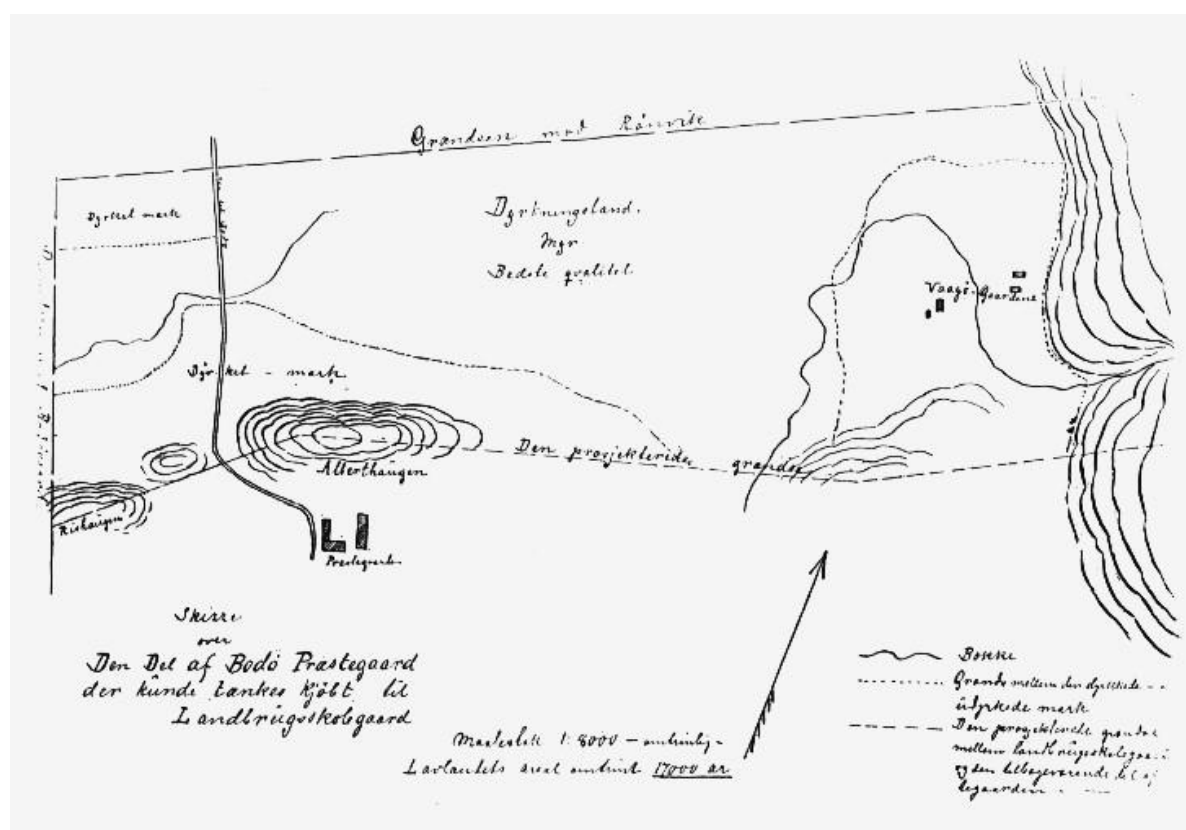 Grændsen mod Rönvik
Dyrket mark
Dyrkningsland.
Myr
Bedste qvalitet
Vaagö-Gaardene
Dyrket - mark
Den prosjekterede grændse
Alterhaugen
Rishaugen
Præstegaarden
Skizze
over
Den Del af Bodö Præstegaard
der kunde tænkes kjöbt til
Landbrugsskolegaard
Maalestok 1:8000 - omtrentlig -
Lavlandets areal omtrent 17000 ar
Bække
Grændse mellem den dyrkede
udyrkede mark
Den prosjekterede grændse
mellem landbrugsskolegaard
og den tilbageværende del af